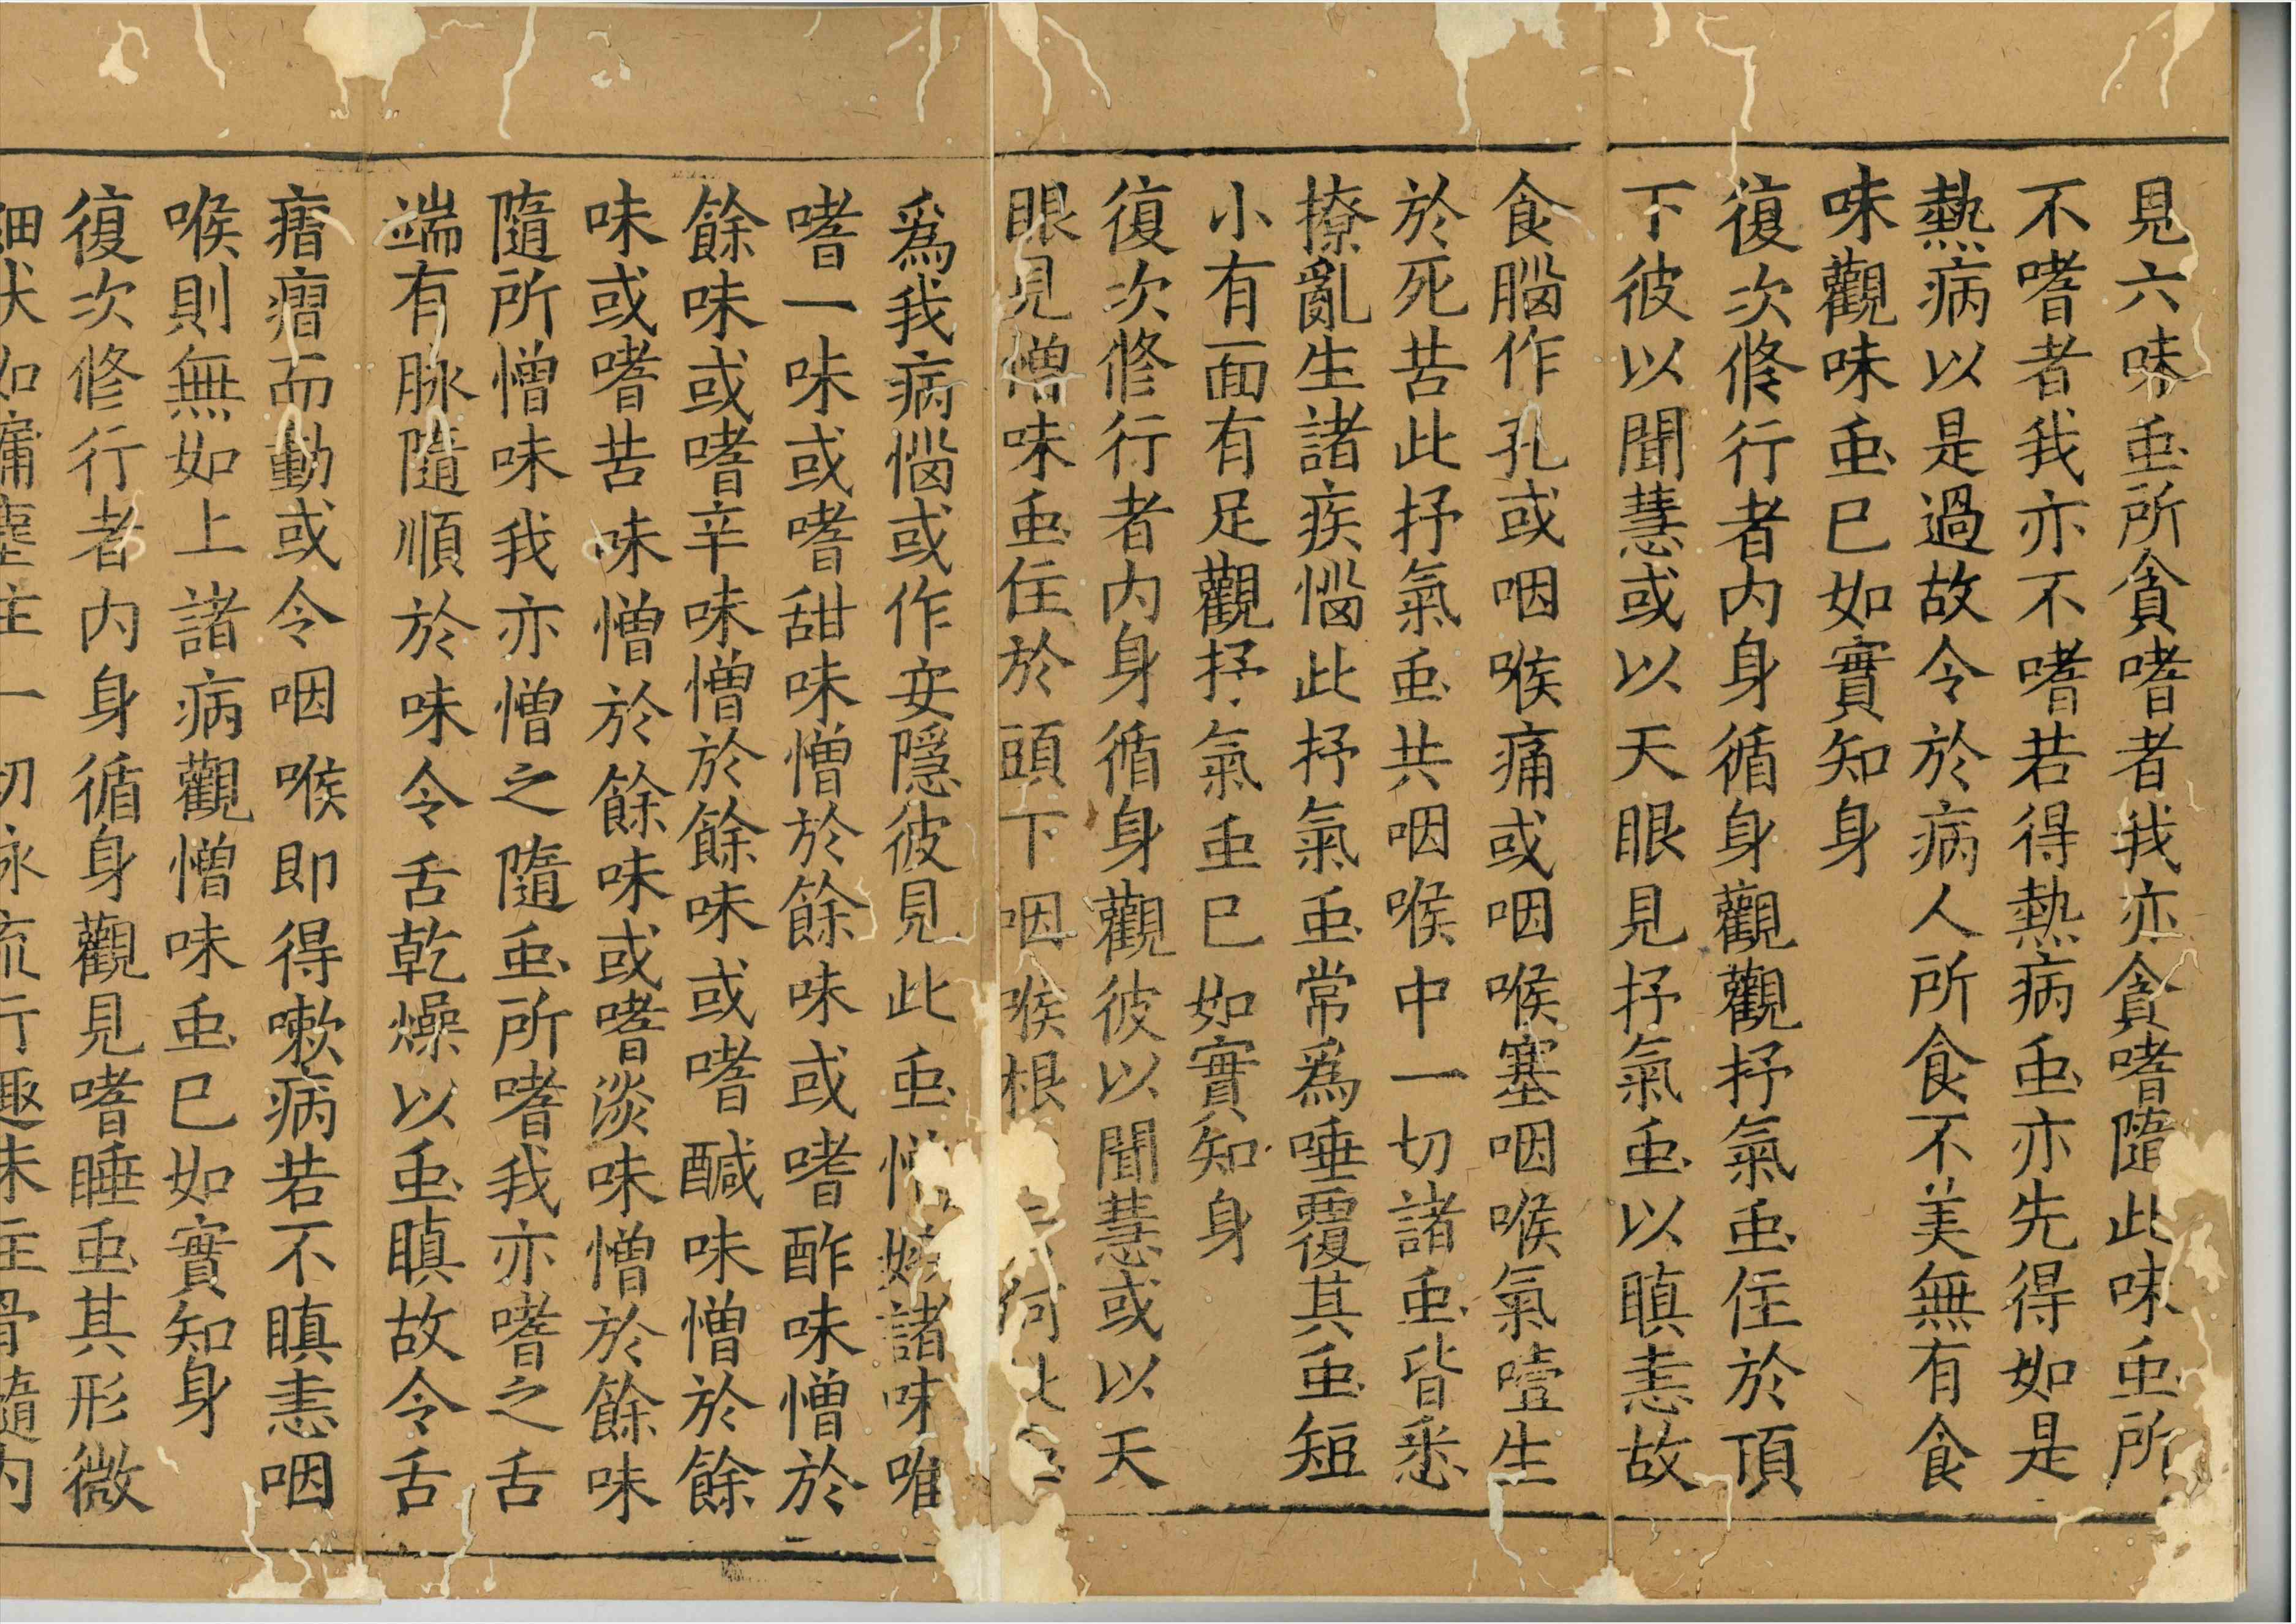 見六味䖝所貪嗜者我亦貪嗜隨此味䖝所
不嗜者我亦不嗜若得熱病䖝亦先得如是
熱病以是過故令於病人所食不美無有食
味觀味䖝巳如實知身
復次修行者内身循身觀觀抒氣䖝住於頂
下彼以聞慧或以天眼見抒氣䖝以瞋恚故
食腦作孔或咽喉痛或咽喉塞咽喉氣噎生
於死苦此抒氣䖝共咽喉中一切諸䖝皆悉
撩亂生諸疾惱此抒氣䖝常爲唾覆其䖝短
小有面有足觀抒氣䖝巳如實知身
復次修行者内身循身觀彼以聞慧或以天
眼見憎味䖝住於頭下咽喉根
爲我病惱或作安隱彼見此䖝憎嫉諸味唯
嗜一味或嗜甜味憎於餘味或嗜酢味憎於
餘味或嗜辛味憎於餘味或嗜醎味憎於餘
味或嗜苦味憎於餘味或嗜淡味憎於餘味
隨所憎味我亦憎之隨䖝所嗜我亦嗜之舌
端有脉隨順於味令舌乾燥以䖝瞋故令舌
㾦㿇而動或令咽喉即得嗽病若不瞋恚咽
喉則無如上諸病觀憎味䖝巳如實知身
復次修行者内身循身觀見嗜睡䖝其形微
細狀如牖塵住一切脉流行趣味住骨髓内